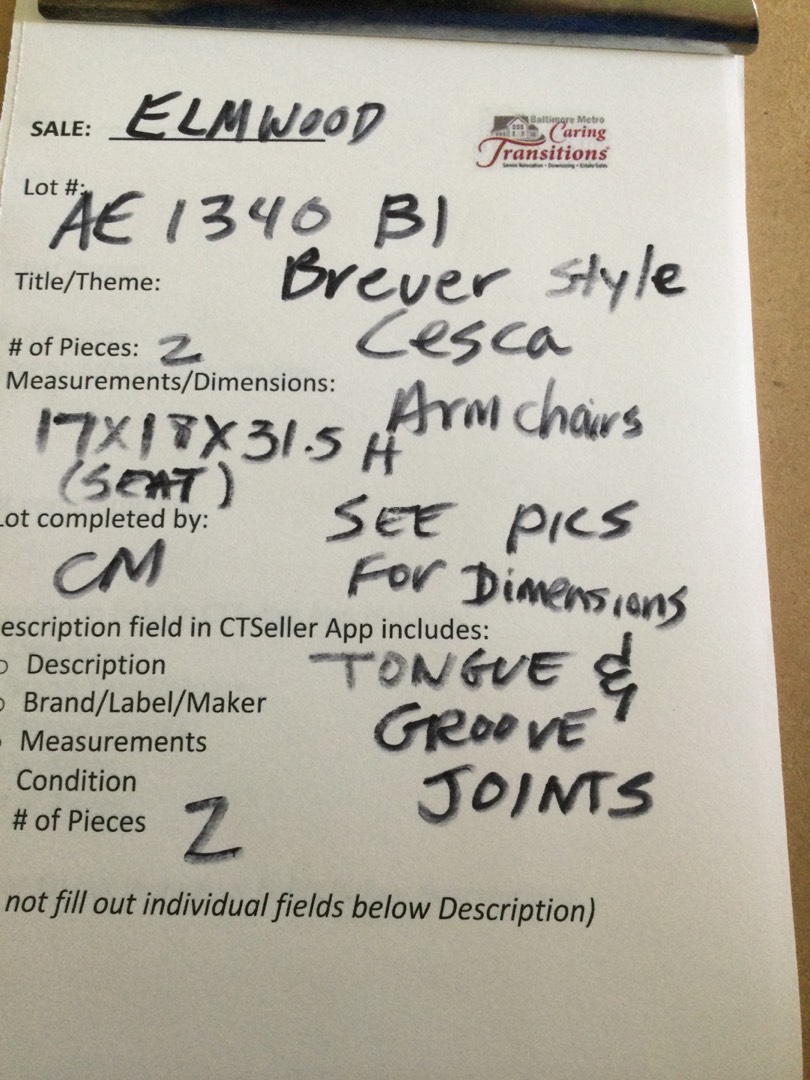 SALE: ELMWOOD
Baltimore Metro
Caring
Transitions
Senior Relocation • Downsizing • Estate Sales
Lot #:
AE 1340 B1
Title/Theme: Breuer style
# of Pieces: 2 Cesca
Measurements/Dimensions: Arm chairs
17X18X31.5 H
(SEAT)
Lot completed by: SEE PICS
CM For Dimensions
escription field in CTSeller App includes:
Description TONGUE &
Brand/Label/Maker GROOVE
Measurements
Condition JOINTS
# of Pieces 2
not fill out individual fields below Description)